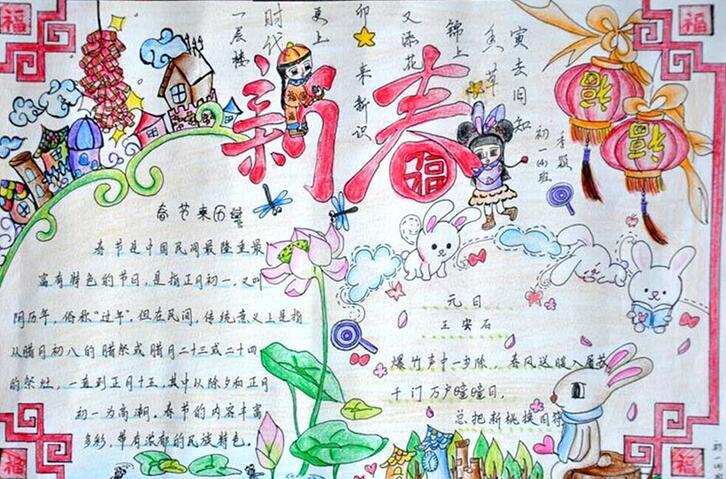 福
福
寅去旧知
兔草
锦上
又添花
卯来新识
更上
时代
一层楼
新春
福
福
福
初一(4)班
李颖
春节来历
春节是中国民间最隆重最
富有特色的节日,是指正月初一,又叫
阴历年,俗称“过年”.但在民间,传统意义上是指
从腊月初八的腊祭或腊月二十三或二十四
的祭灶,一直到正月十五,其中以除夕和正月
初一为高潮.春节的内容丰富
多彩,带有浓郁的民族特色。
元日
王安石
爆竹声中一岁除,春风送暖入屠苏
千门万户曈曈日,
总把新桃换旧符
福
福